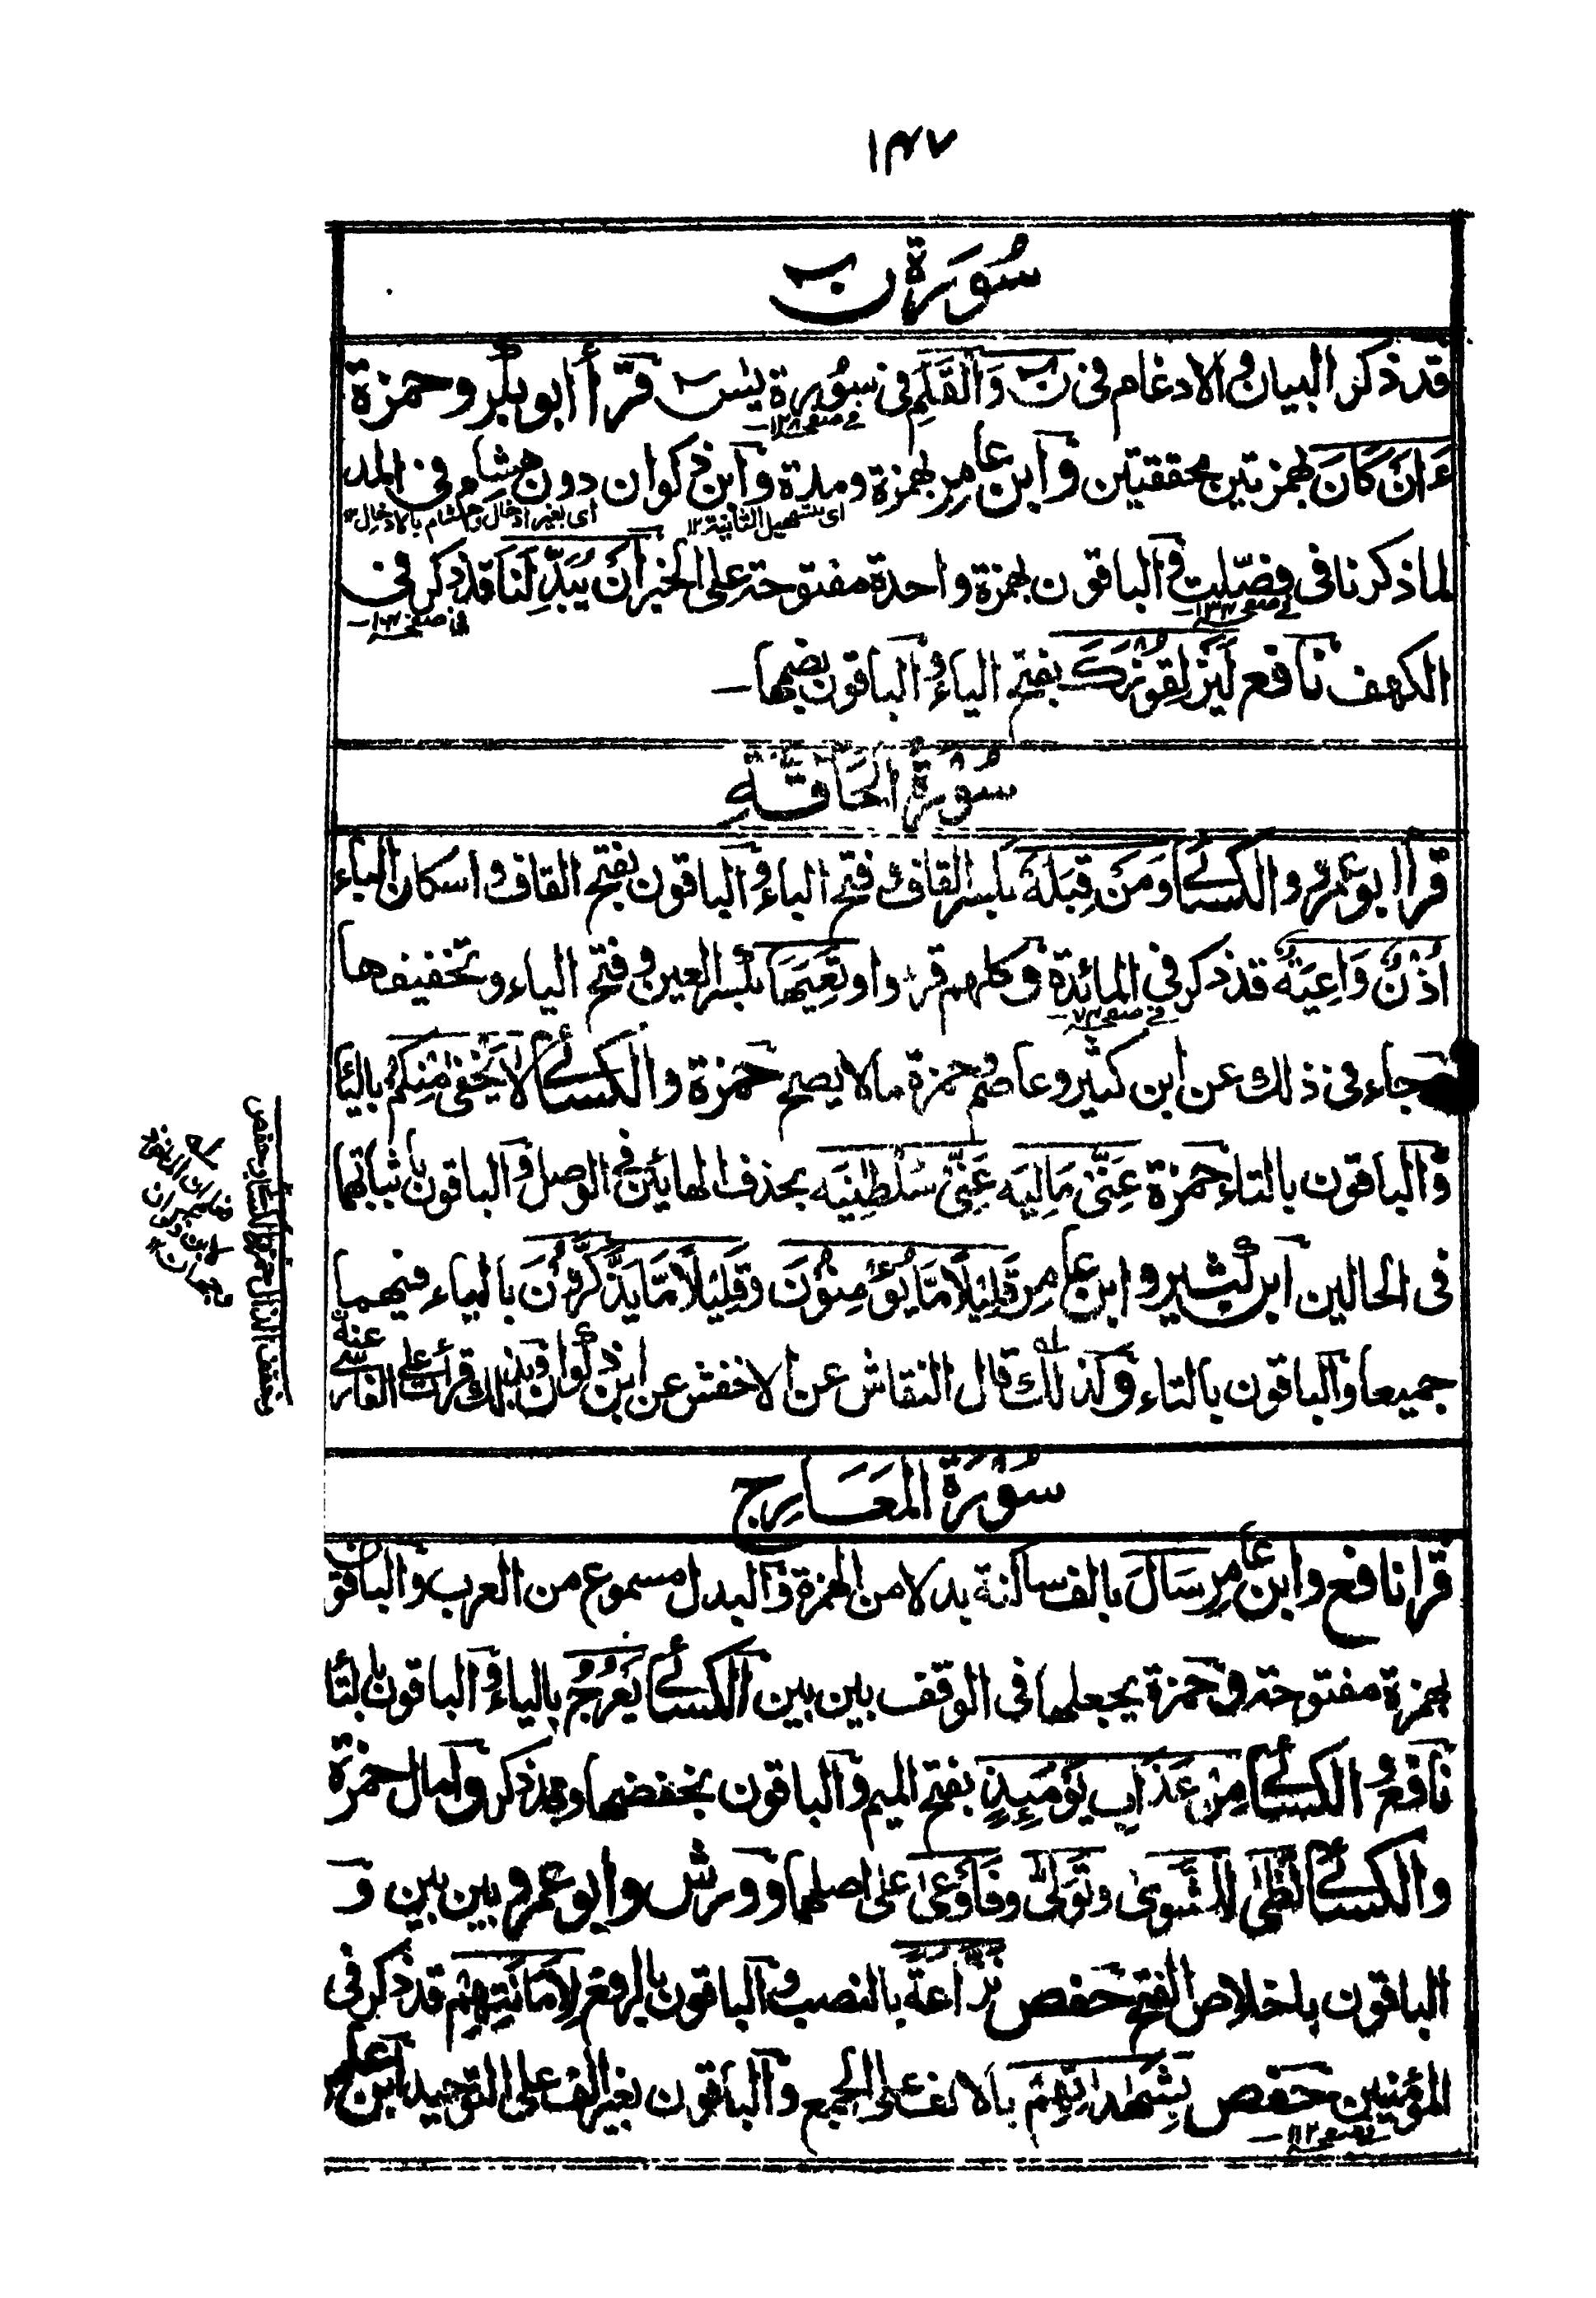 ١٤٧
سُورَة نٓ
قد ذكر البيان والادغام فى نٓ وَالْقَلَمِ فى سورة يٰسٓ قرأ ابو بكر وحمزة
فى صفحه ١٢٨
ءَاَنْ كَانَ بهمزتين محققتين وابن عامر بهمزة ومدة وابن ذكوان دون هشام فى المد
اى بتسهيل الثانية ١٢
اى بغير ادخال وهشام بالادخال ١٢
لما ذكرنا فى فصّلت والباقون بهمزة واحدة مفتوحة على الخبر اَنْ يُّبْدِلَنَا قد ذكر فى
الكهف نافع لَيَزْلِقُوْنَكَ بفتح الياء والباقون بضمها
سُورَةُ الْحَاقَّةِ
قرأ ابو عمرو والكسائى وَمَنْ قِبَلَهٗ بكسر القاف وفتح الباء والباقون بفتح القاف واسكان الباء
اُذُنٌ وَّاعِيَةٌ قد ذكر فى المائدة وكلهم قرءوا وَتَعِيَهَا بكسر العين وفتح الياء وتخفيفها
وجاء فى ذلك عن ابن كثير وعاصم وحمزة ما لا يصح حمزة والكسائى لَا يَخْفٰى مِنْكُمْ باليا
والباقون بالتاء حمزة عَنِّىْ مَالِيَه عَنِّىْ سُلْطٰنِيَه بحذف الهائين فى الوصل والباقون باثباتها
فى الحالين ابن كثير وابن عامر قَلِيْلًا مَّا يُؤْمِنُوْنَ وَقَلِيْلًا مَّا يَذَّكَّرُوْنَ بالياء فيهما
جميعا والباقون بالتاء وكذلك قال النقاش عن الاخفش عن ابن ذكوان وبذلك قرأت على الفارسى عنه
سُوْرَةُ الْمَعَارِج
قرأ نافع وابن عامر سَالَ بالف ساكنة بدلا من الهمزة والبدل مسموع من العرب والباقون
بهمزة مفتوحة وحمزة يجعلها فى الوقف بين بين الكسائى يَعْرُجُ بالياء والباقون بالتا
نافع والكسائى مِنْ عَذَابِ يَوْمَئِذٍ بفتح الميم والباقون بخفضها وقد ذكر وامال حمزة
والكسائى لَظٰى لِلشَّوٰى وَتَوَلّٰى وَفَاَوْعٰى على اصلهما وورش وابو عمرو بين بين و
الباقون باخلاص الفتح حفص نَزَّاعَةً بالنصب والباقون بالرفع لِاَمَانَتِهِمْ قد ذكر فى
المؤمنين حفص بِشَهٰدٰتِهِمْ بالالف على الجمع والباقون بغير الف على التوحيد ابن عامر